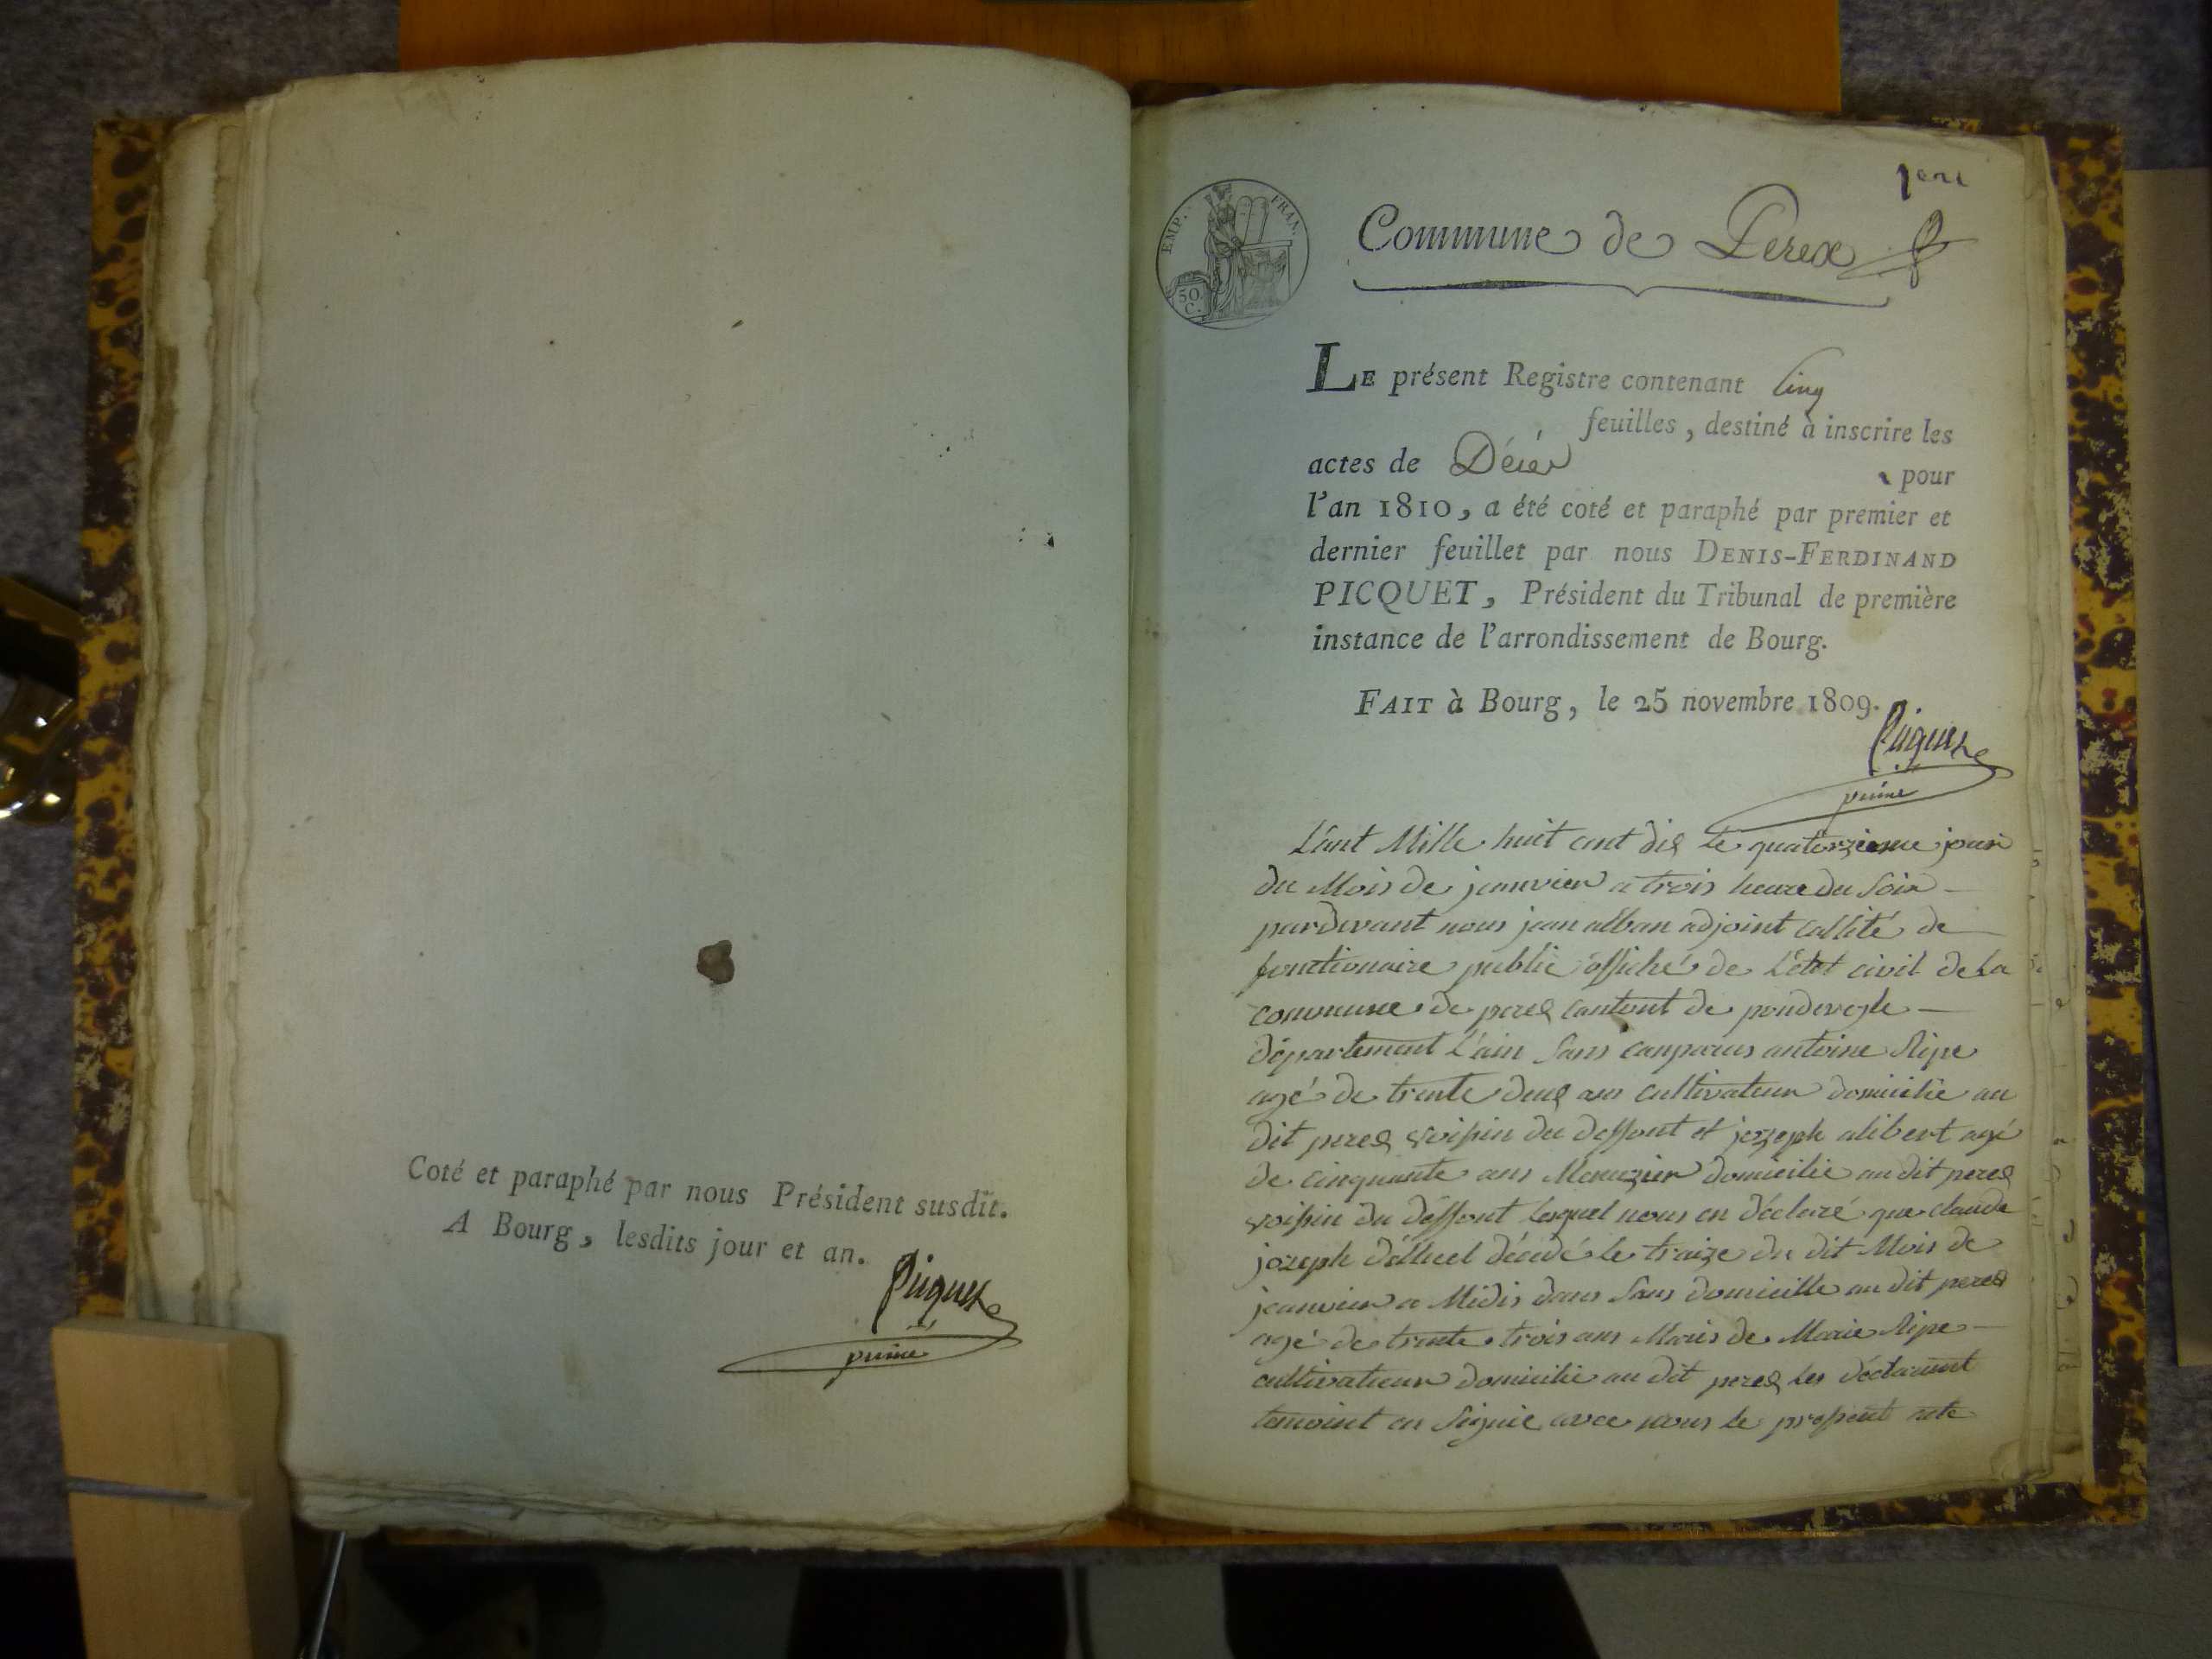 Coté et paraphé par nous Président susdit.
A Bourg, lesdits jour et an.
Picquet
EMP. FRAN.
50
C.
Commune de Perex
LE présent Registre contenant cinq
feuilles, destiné à inscrire les
actes de Décès
pour
l'an 1810, a été coté et paraphé par premier et
dernier feuillet par nous DENIS-FERDINAND
PICQUET, Président du Tribunal de première
instance de l'arrondissement de Bourg.
FAIT à Bourg, le 25 novembre 1809.
Picquet
L'ant Mille huit cent dix le quatorzieme jour
du Mois de jeanvier a trois heure du soir
pardevant nous jean alban adjoint callité de
fonctionaire public offiché de L'etet civil de La
commune de perex cantont de pondevegle
département L'ain Sans canparus antoine Ripe
agé de trente deux ans cultivateur domicilie au
dit perex voissin du deffont et jozeph alibert agé
de cinquante ans Menuzier domicilie au dit perex
voissin du déffont lesquel nous on déclaré que claude
jozeph décédé le traize du dit Mois de
jeanvier a Midis dans sans domicille au dit perex
agé de trente trois ans Maris de Marie Ripe
cultivateur domicilie au dit perex les déclarant
temoint on signie avec nous le present acte